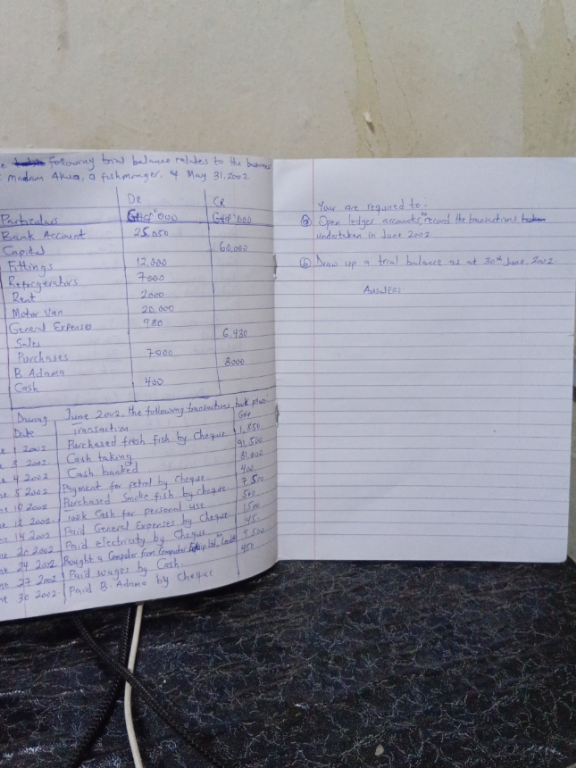 e following trial balance relates to the business
madam Akua, a fishmonger. May 31, 2002
Particulars DR GH¢'000 CR GH¢'000
Bank Account 25,050
Capital 60,000
Fittings 12,000
Refrigerators 7000
Rent 2000
Motor Van 20,000
General Expenses 980
Sales 6,430
Purchases 7000
B. Adama 8000
Cash 400
During June 2002, the following transactions took place
Date Transaction GH¢
1 2002 Purchased fresh fish by Cheque 1,850
3 2002 Cash taking 91,500
4 2002 Cash banked 81,000
5 2002 Payment for petrol by Cheque 400
10 2002 Purchased Smoke fish by cheque 7,500
12 2002 took Cash for personal use 500
14 2002 Paid General Expenses by Cheque 1500
20 2002 Paid electricity by Cheque 45
24 2002 Bought a Computer from Computer 9,500
27 2002 Paid wages by Cash. 450
30 2002 Paid B. Adama by Cheque
You are required to:
(a) Open ledger accounts, to record the transactions
undertaken in June 2002
(b) Draw up a trial balance as at 30th June, 2002.
Answer